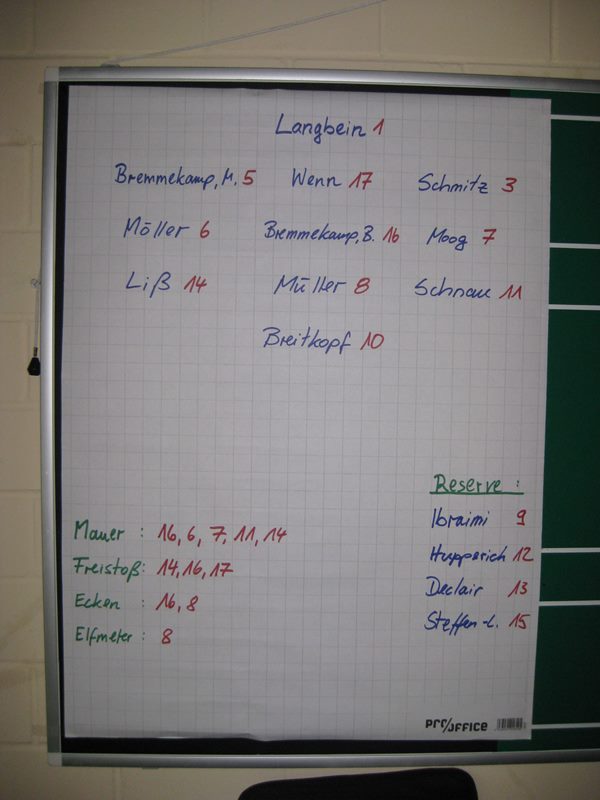 Langbein 1
Bremmekamp, M. 5 Wenn 17 Schmitz 3
Möller 6 Bremmekamp, B. 16 Moog 7
Liß 14 Müller 8 Schnaue 11
Breitkopf 10
Reserve :
Ibraimi 9
Hupperich 12
Declair 13
Steffen-L. 15
Mauer : 16, 6, 7, 11, 14
Freistoß : 14, 16, 17
Ecken : 16, 8
Elfmeter : 8
PRO/OFFICE